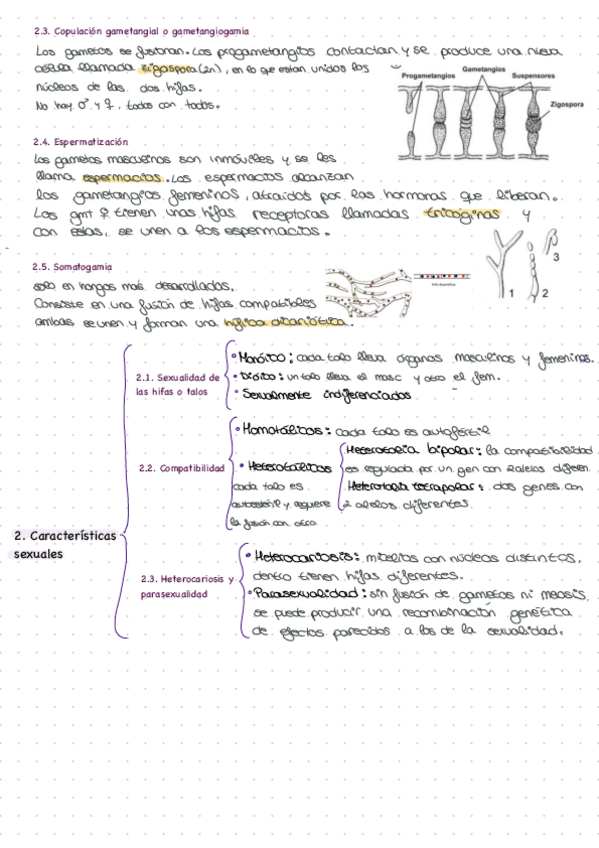 2.3. Copulación gametangial o gametangiogamia
Los gametos se fusionan. Los progametangios contactan y se produce una nueva
célula llamada zigospora (2n), en lo que estan unidos los
núcleos de las dos hifas.
No hay ♂ y ♀, todos con todos.
Progametangios
Gametangios
Suspensores
Zigospora
2.4. Espermatización
Los gametos masculinos son inmóviles y se les
llama espermacios. Los espermacios alcanzan
los gametangios femeninos, atraídos por las hormonas que liberan.
Los gmt ♀ tienen unas hifas receptoras llamadas tricóginas y
con estas, se unen a los espermacios.
1
2
3
2.5. Somatogamia
solo en hongos más desarrollados.
Consiste en una fusión de hifas compatibles
ambas se unen y forman una hifa dicariótica.
2. Características
sexuales
2.1. Sexualidad de
las hifas o talos
• Monóico: cada talo lleva órganos masculinos y femeninos.
• Dióico: un talo lleva el masc y otro el fem.
• Sexualmente indiferenciados
2.2. Compatibilidad
• Homotálicos: cada talo es autofértil
• Heterotálicos
cada talo es
autoestéril y requiere
la fusión con otro
Heterotalia bipolar: la compatibilidad
es regulada por un gen con 2 alelos diferen.
Heterotalia tetrapolar: dos genes con
2 alelos diferentes
2.3. Heterocariosis y
parasexualidad
• Heterocariosis: micelios con núcleos distintos,
dentro tienen hifas diferentes.
• Parasexualidad: sin fusión de gametos ni meiosis,
se puede producir una recombinación genética
de efectos parecidos a los de la sexualidad.